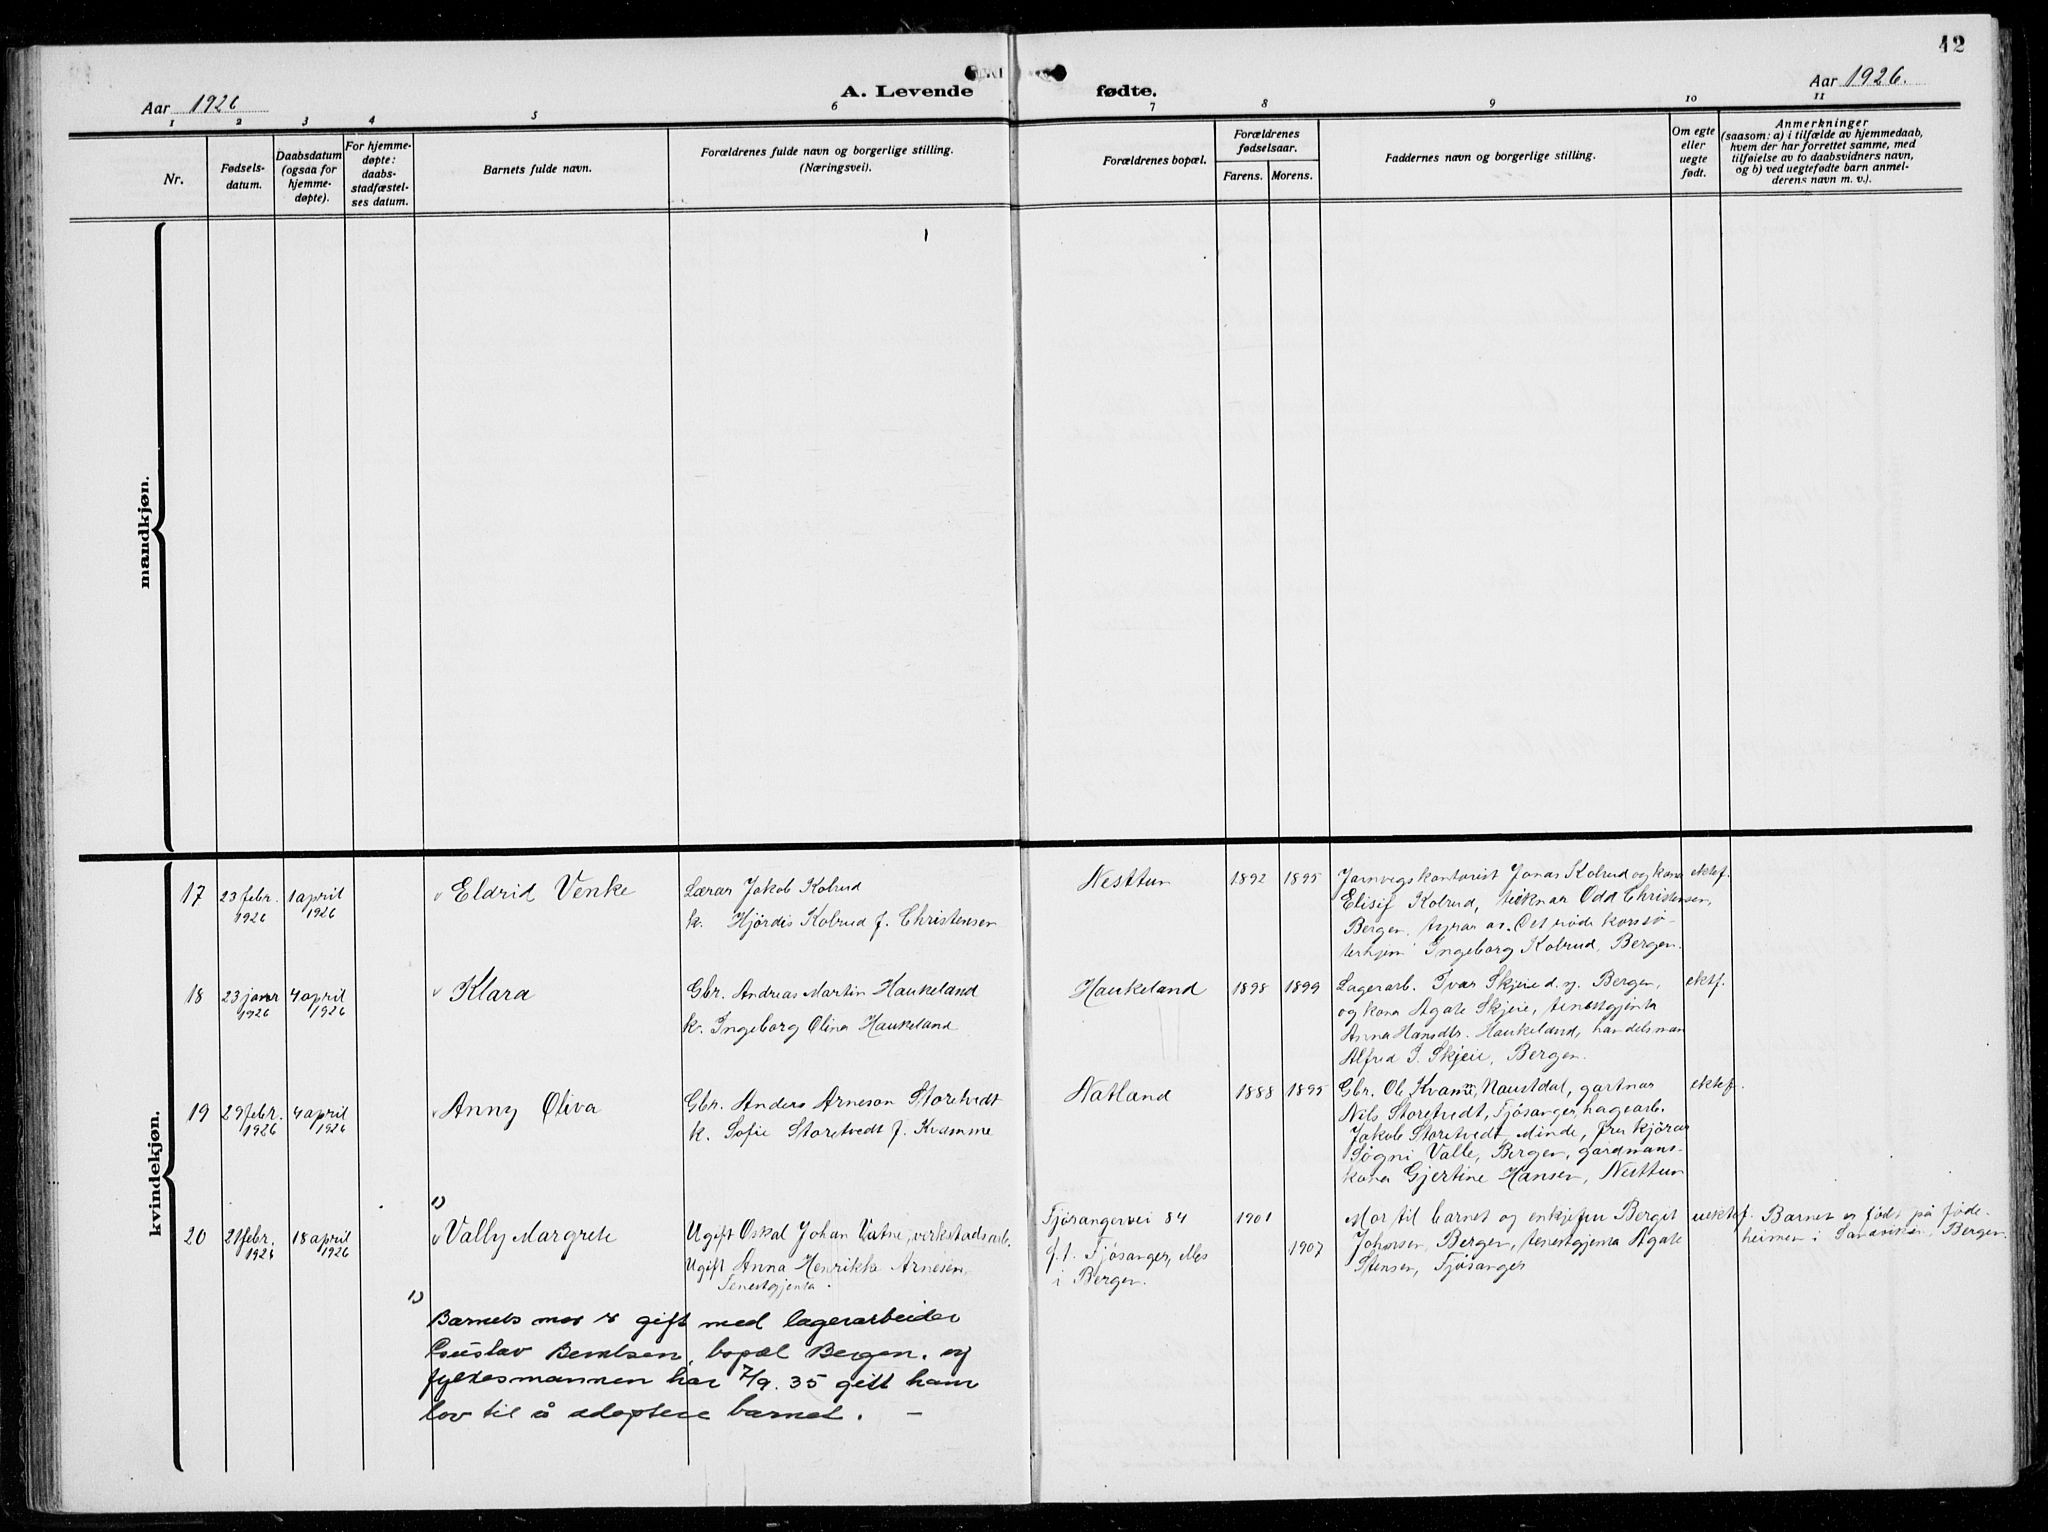 12
Aar 1926
A. Levende fødte.
Aar 1926.
1 2 3 4 5 6 7 8 9 10 11
Nr.
Fødsels-
datum.
Daabsdatum
(ogsaa for
hjemme-
døpte).
For hjemme-
døpte:
daabs-
stadfæstel-
ses datum.
Barnets fulde navn.
Forældrenes fulde navn og borgerlige stilling.
(Næringsvei).
Forældrenes bopæl.
Forældrenes
fødselsaar.
Farens. Morens.
Faddernes navn og borgerlige stilling.
Om egte
eller
uegte
født.
Anmerkninger
(saasom: a) i tilfælde av hjemmedaab,
hvem der har forrettet samme, med
tilføielse av to daabsvidners navn,
og b) ved uegtefødte barn anmel-
derens navn m. v.).
mandkjøn.
kvindekjøn.
17
23 febr.
1926
1 april
1926
Eldrid Venke
Lærar Jakob Kolrud
k. Hjördis Kolrud f. Christensen
Nesttun
1892 1895
Jarnvegskontorist Jonas Kolrud og kona
Elisif Kolrud, teiknar Odd Christensen,
Bergen, styrar av Det röde kors sö-
terhjem Ingeborg Kolrud, Bergen.
ektef.
18
23 januar
1926
4 april
1926
Klara
Gbr. Andreas Martin Haukeland
k. Ingeborg Olina Haukeland
Haukeland
1898 1899
Lagerarb. Ivar Skjeie d.y. Bergen,
og kona Agate Skjeie, tenestgjenta
Anna Hansdtr. Haukeland, handelsman
Alfred I. Skjeie, Bergen.
ektf.
19
29 febr.
1926
4 april
1926
Anny Oliva
Gbr. Anders Arneson Storetvedt
k. Sofie Storetvedt f. Kvamme
Natland
1888 1895
Gbr. Ole Kvamme, Naustdal, gartnar
Nils Storetvedt, Fjösanger, hagearb.
Jakob Storetvedt, Minde, fru kjörar
Søgni Valle, Bergen, gardmans-
kona Gjertine Hansen, Nesttun
ektef.
20
21 febr.
1926
18 april
1926
1)
Vally Margrete
Ugift Oskal Johan Vatne, virkestadsarb.
Ugift Anna Henrikka Arnesen,
Tenestgjenta.
Fjösangervei 84
f.t. Fjösanger, elles
i Bergen.
1901
1907
Mor til barnet og enkjefru Bergit
Johnsen, Bergen, tenestgjenta Agate
Stensen, Fjösanger
uektef.
Barnet er födt på föde-
heimen i Sandviken, Bergen.
1)
Barnets mor er gift med lagerarbeider
Gustav Berntsen, bopæl Bergen, og
fylkesmannen har 7/9. 35 gitt ham
lov til å adoptere barnet. —